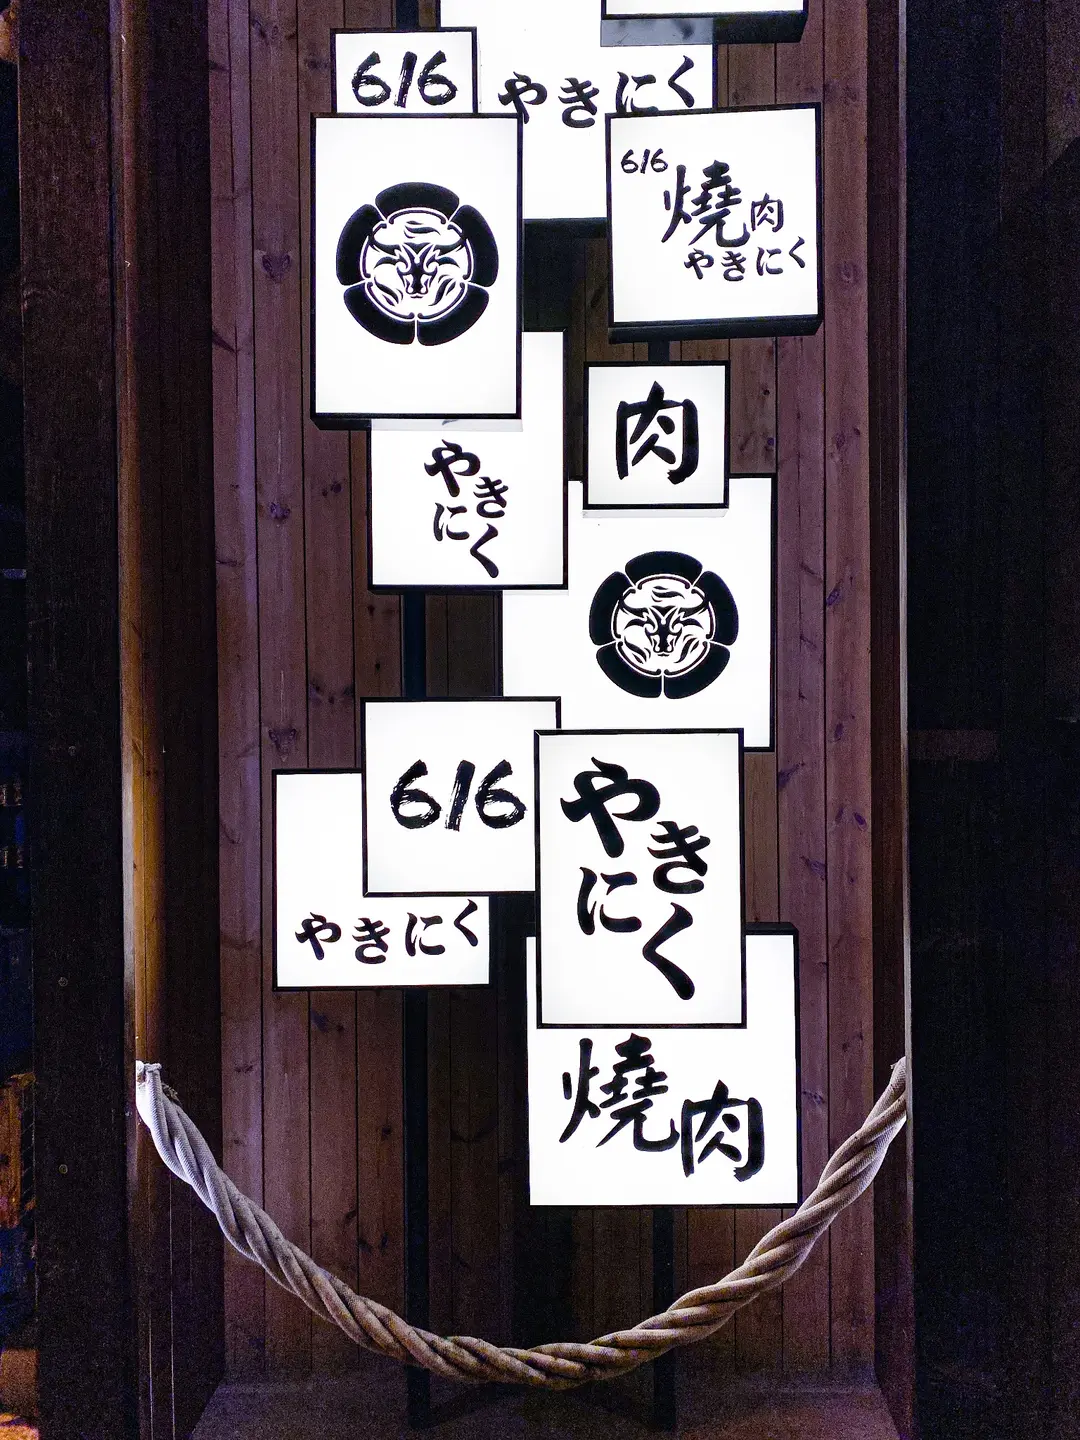 616
やきにく
616
燒肉
やきにく
肉
やきにく
616
やきにく
やきにく
燒肉